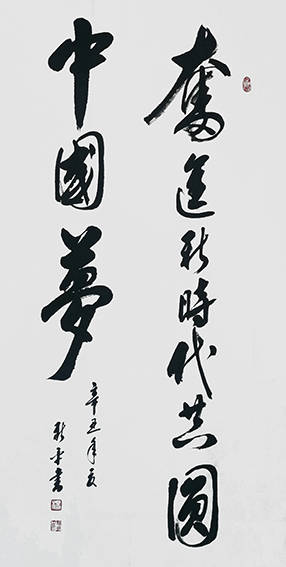 奮進新時代共圓
中國夢
辛丑年夏
新平書